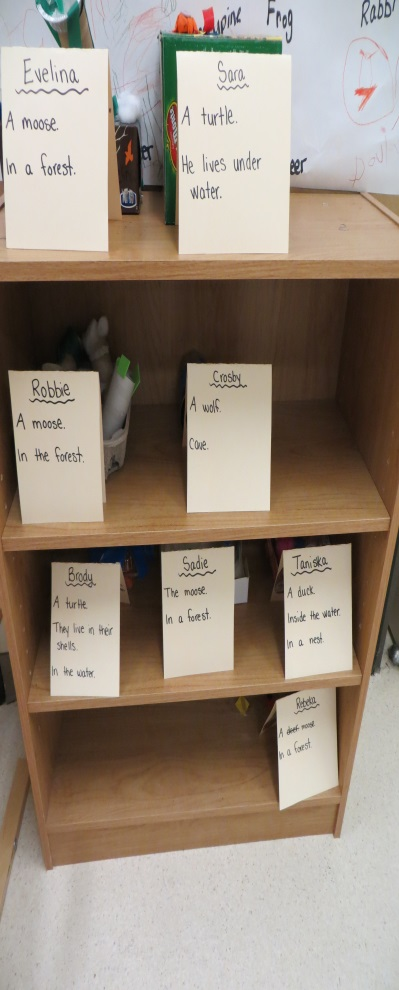 Frog
Evelina
A moose.
In a forest.
Sara
A turtle.
He lives under
water.
Robbie
A moose.
In the forest.
Crosby
A wolf.
Cave.
Brody
A turtle
They live in their
shells.
In the water.
Sadie
The moose.
In a forest.
Taniska
A duck
Inside the water.
In a nest.
Rebeka
A moose
In a forest.